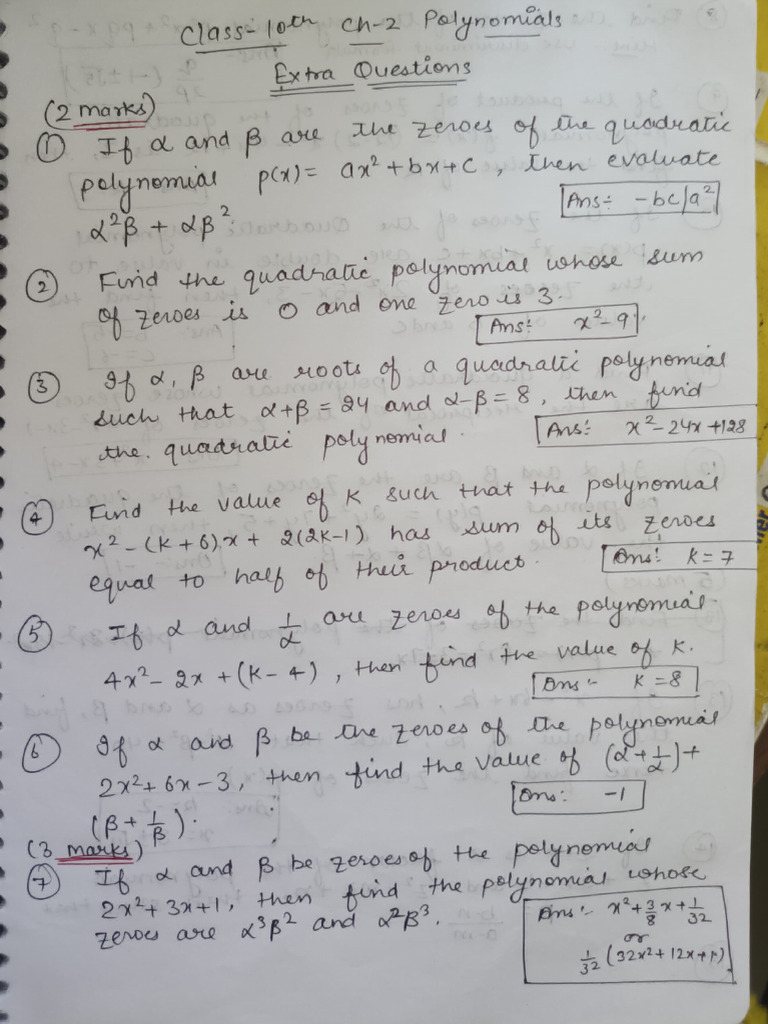 Class-10th Ch-2 Polynomials
Extra Questions
(2 marks)
① If α and β are the zeroes of the quadratic
polynomial p(x) = ax² + bx + c, then evaluate
α²β + αβ². Ans:- -bc/a²
② Find the quadratic polynomial whose sum
of zeroes is 0 and one zero is 3.
Ans: x²-9
③ If α, β are roots of a quadratic polynomial
such that α+β = 24 and α-β = 8, then find
the quadratic polynomial. Ans: x²-24x+128
④ Find the value of K such that the polynomial
x² - (K+6)x + 2(2K-1) has sum of its zeroes
equal to half of their product. Ans: K = 7
⑤ If α and 1/α are zeroes of the polynomial
4x² - 2x + (K-4), then find the value of K.
Ans:- K = 8
⑥ If α and β be the zeroes of the polynomial
2x² + 6x - 3, then find the value of (α + 1/α) +
(β + 1/β). Ans: -1
(3 marks)
⑦ If α and β be zeroes of the polynomial
2x² + 3x + 1, then find the polynomial whose
zeroes are α³β² and α²β³. Ans:- x² + 3/8 x + 1/32
or
1/32 (32x² + 12x + 1)